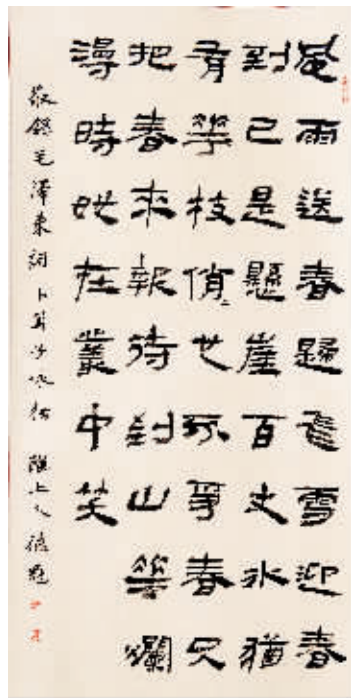 風雨送春歸飛雪迎春
到已是懸崖百丈冰猶
有華枝俏〻也不爭春只
把春來報待到山華爛
漫時她在叢中笑
敬錄毛澤東詞卜算子詠梅 隴上人德題